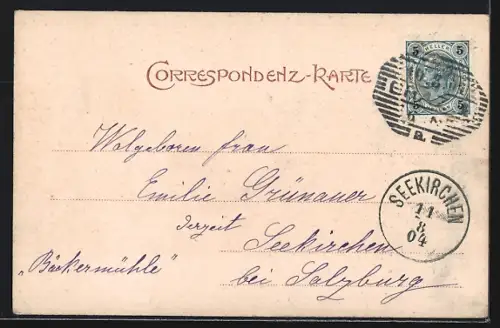 5 HELLER 5
CORRESPONDENZ-KARTE
5 5
a.
Wolgeboren frau
Emilie Grünauer
SEEKIRCHEN
11
8
04
derzeit
Seekirchen
„Bäckermühle“
bei Salzburg